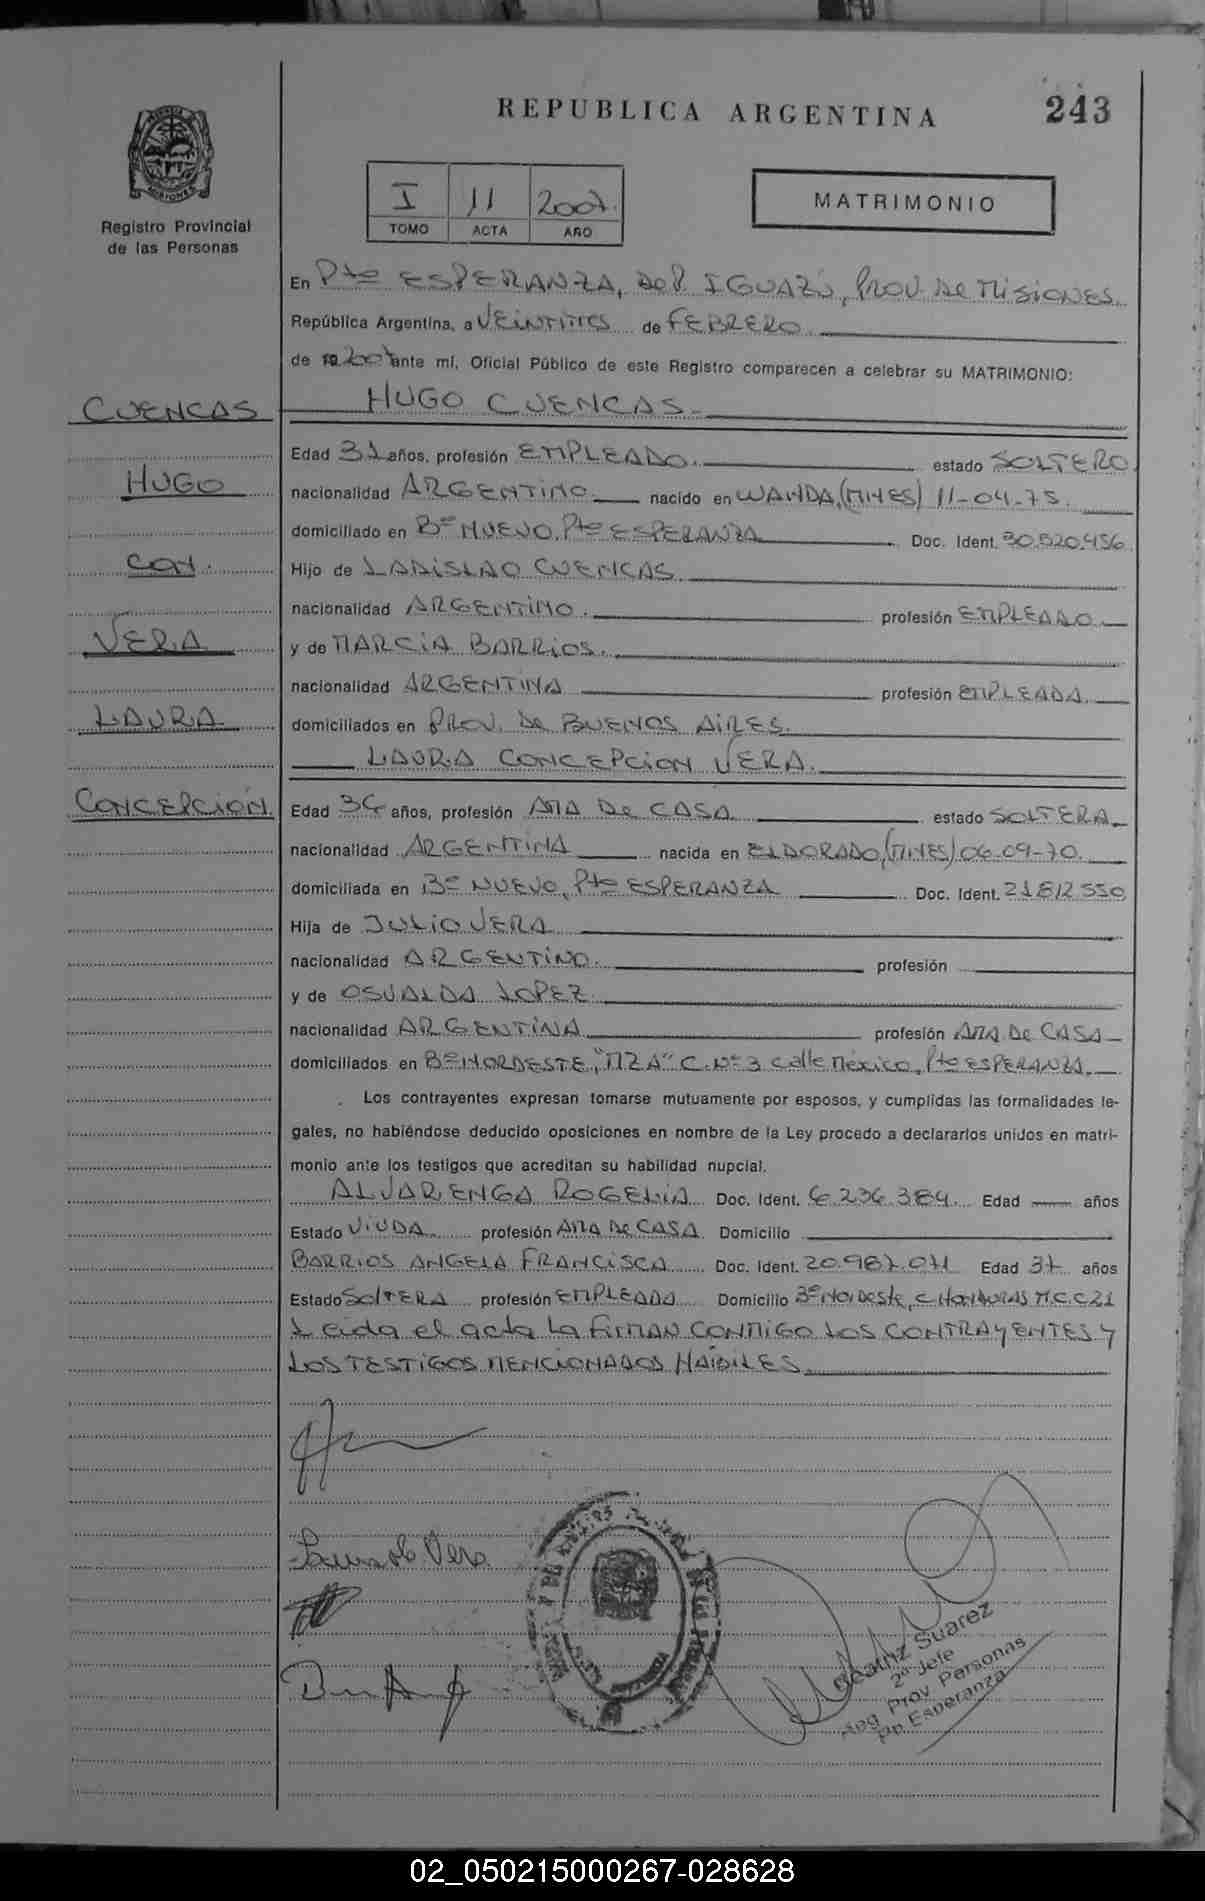 REPUBLICA ARGENTINA
243
Registro Provincial
de las Personas
I 11 2007.
TOMO ACTA AÑO
MATRIMONIO
En Pto ESPERANZA, DEP. IGUAZU, PROV. DE MISIONES.
República Argentina, a VEINTITRES de FEBRERO.
de 19 2007 ante mí, Oficial Público de este Registro comparecen a celebrar su MATRIMONIO:
CUENCAS
HUGO
CON.
VERA
LAURA
CONCEPCION.
HUGO CUENCAS.
Edad 31 años, profesión EMPLEADO. estado SOLTERO
nacionalidad ARGENTINO nacido en WANDA, (MNES) 11-04-75.
domiciliado en Bº NUEVO, Pto ESPERANZA Doc. Ident. 30.520.456
Hijo de LADISLAO CUENCAS
nacionalidad ARGENTINO. profesión EMPLEADO
y de MARCIA BARRIOS.
nacionalidad ARGENTINA profesión EMPLEADA
domiciliados en PROV. DE BUENOS AIRES.
LAURA CONCEPCION VERA.
Edad 36 años, profesión AMA DE CASA estado SOLTERA
nacionalidad ARGENTINA nacida en ELDORADO, (MNES) 06-09-70.
domiciliada en Bº NUEVO, Pto ESPERANZA Doc. Ident. 21.812.550
Hija de JULIO VERA
nacionalidad ARGENTINO. profesión
y de OSVALDA LOPEZ
nacionalidad ARGENTINA profesión AMA DE CASA
domiciliados en Bº NORDESTE, "MZA" C. Nº 3 calle México, Pto ESPERANZA.
Los contrayentes expresan tomarse mutuamente por esposos, y cumplidas las formalidades le-
gales, no habiéndose deducido oposiciones en nombre de la Ley procedo a declararlos unidos en matri-
monio ante los testigos que acreditan su habilidad nupcial.
ALVARENGA ROGELIA Doc. Ident. 6.236.384. Edad años
Estado VIUDA profesión AMA DE CASA Domicilio
BARRIOS ANGELA FRANCISCA Doc. Ident. 20.987.071 Edad 37 años
Estado SOLTERA profesión EMPLEADA Domicilio Bº Nordeste, C. HONDURAS M.C.C21
Leida el acta LA FIRMAN CONMIGO LOS CONTRAYENTES Y
LOS TESTIGOS MENCIONADOS HABILES.
Vera
Beatriz Suarez
2º Jefe
Reg. Prov. Personas
Pto. Esperanza
02_050215000267-028628